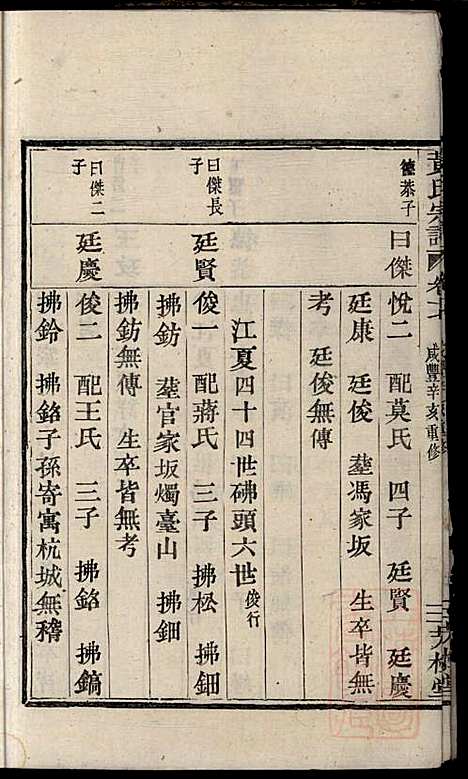 黃氏宗譜 卷七 咸豐辛亥重修
德恭子
曰傑
悅二 配莫氏 四子 廷賢 廷慶
廷康 廷俊 塟馮家坂 生卒皆無
考 廷俊無傳
江夏四十四世砩頭六世俊行
曰傑長
子
廷賢
俊一 配蔣氏 三子 拂松 拂鈿
拂鈁 塟官家坂燭臺山 拂鈿
拂鈁無傳 生卒皆無考
曰傑二
子
廷慶
俊二 配王氏 三子 拂銘 拂鎬
拂鈴 拂銘子孫寄寓杭城無稽